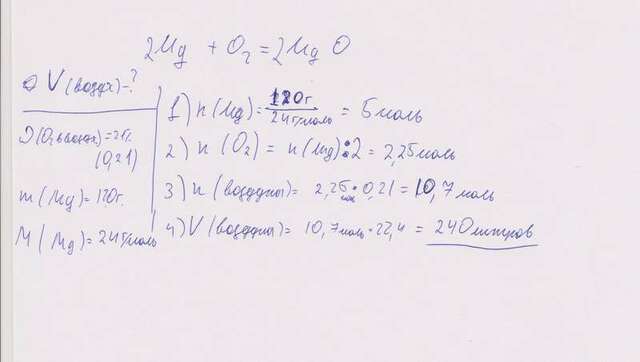 2Mg + O₂ = 2Mg O
V(возд)-?
(0,21)
m(Mg)=120г.
M(Mg)=24г/моль
1) n(Mg)= 120г. / 24г/моль = 5моль
2) n(O₂) = n(Mg):2 = 2,25моль
3) n(воздуха)= 2,25 : 0,21 = 10,7 моль
4) V(воздуха)= 10,7моль·22,4 = 240литров